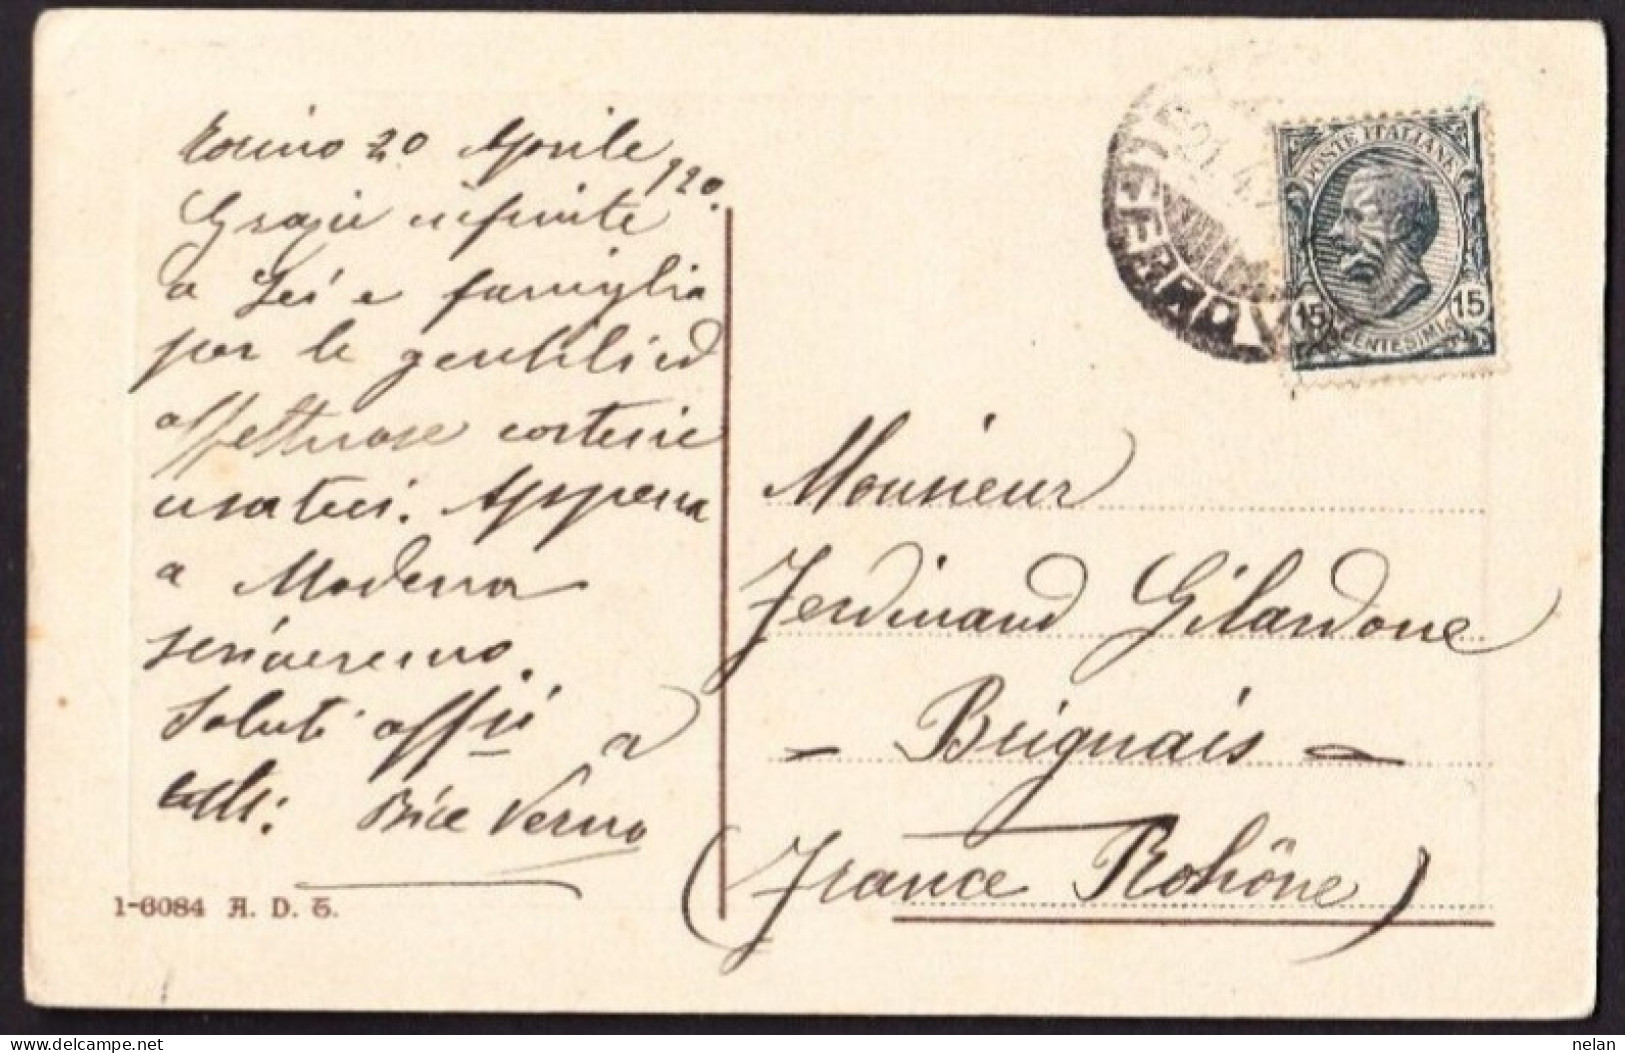 Torino 20 Aprile
920.
Grazie infinite
a Lei e famiglia
per le gentili ed
affettuose cortesie
usateci. Appena
a Modena
scriveremo.
Saluti aff.ii a
tutti: Bice Verno
1-6084 A. D. T.
21.4
FERROVIA
POSTE ITALIANE
15 15
CENTESIMI
Monsieur
Ferdinand Gilardone
- Brignais -
(France Rohône)
delcampe.net
nelan